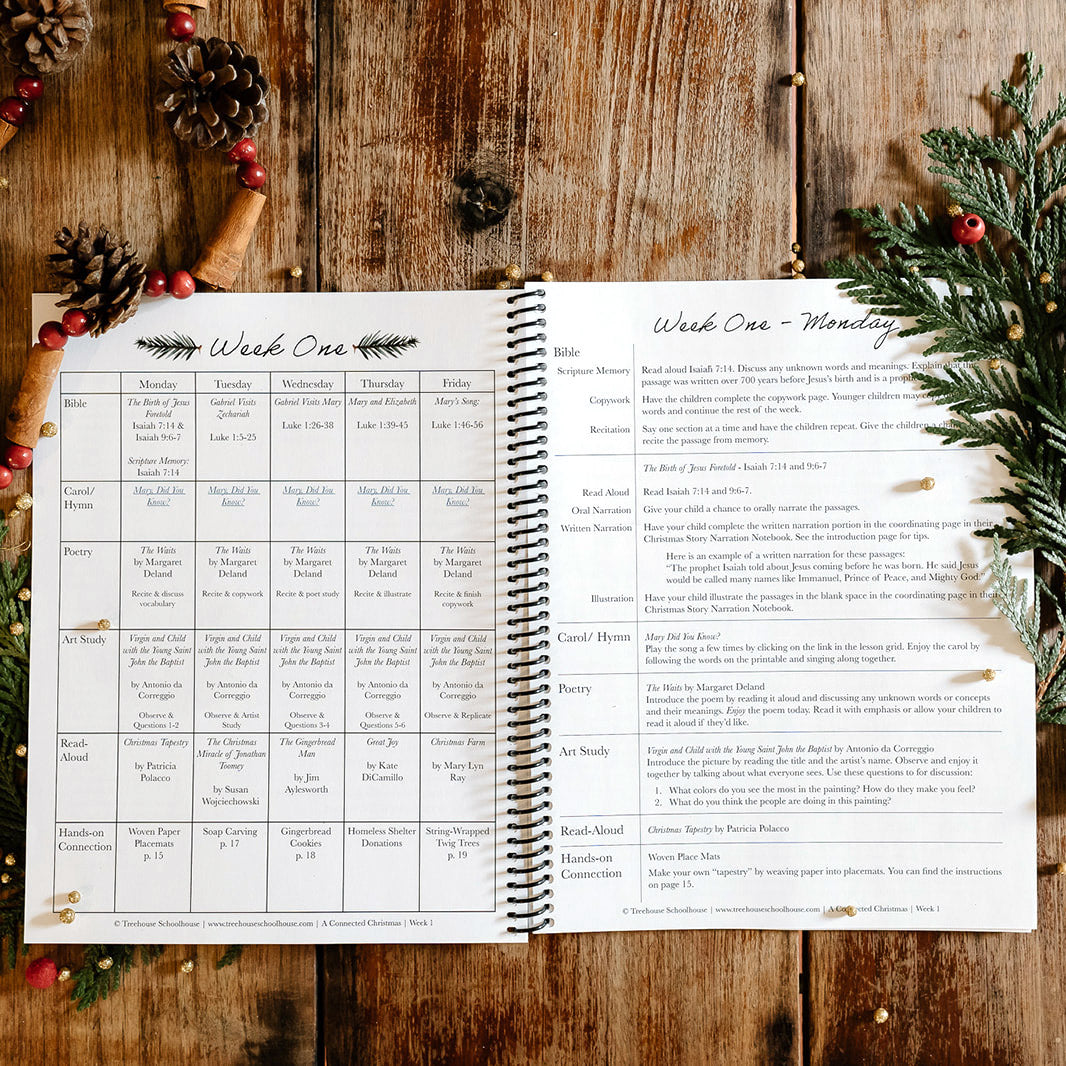 Week One
Monday Tuesday Wednesday Thursday Friday
Bible
The Birth of Jesus
Foretold
Isaiah 7:14 &
Isaiah 9:6-7
Scripture Memory:
Isaiah 7:14
Gabriel Visits
Zechariah
Luke 1:5-25
Gabriel Visits Mary
Luke 1:26-38
Mary and Elizabeth
Luke 1:39-45
Mary's Song:
Luke 1:46-56
Carol/
Hymn
Mary, Did You
Know?
Mary, Did You
Know?
Mary, Did You
Know?
Mary, Did You
Know?
Mary, Did You
Know?
Poetry
The Waits
by Margaret
Deland
Recite & discuss
vocabulary
The Waits
by Margaret
Deland
Recite & copywork
The Waits
by Margaret
Deland
Recite & poet study
The Waits
by Margaret
Deland
Recite & illustrate
The Waits
by Margaret
Deland
Recite & finish
copywork
Art Study
Virgin and Child
with the Young Saint
John the Baptist
by Antonio da
Correggio
Observe &
Questions 1-2
Virgin and Child
with the Young Saint
John the Baptist
by Antonio da
Correggio
Observe & Artist
Study
Virgin and Child
with the Young Saint
John the Baptist
by Antonio da
Correggio
Observe &
Questions 3-4
Virgin and Child
with the Young Saint
John the Baptist
by Antonio da
Correggio
Observe &
Questions 5-6
Virgin and Child
with the Young Saint
John the Baptist
by Antonio da
Correggio
Observe & Replicate
Read-
Aloud
Christmas Tapestry
by Patricia
Polacco
The Christmas
Miracle of Jonathan
Toomey
by Susan
Wojciechowski
The Gingerbread
Man
by Jim
Aylesworth
Great Joy
by Kate
DiCamillo
Christmas Farm
by Mary Lyn
Ray
Hands-on
Connection
Woven Paper
Placemats
p. 15
Soap Carving
p. 17
Gingerbread
Cookies
p. 18
Homeless Shelter
Donations
String-Wrapped
Twig Trees
p. 19
© Treehouse Schoolhouse | www.treehouseschoolhouse.com | A Connected Christmas | Week 1
Week One - Monday
Bible
Scripture Memory
Read aloud Isaiah 7:14. Discuss any unknown words and meanings. Explain that
passage was written over 700 years before Jesus's birth and is a
Copywork
Have the children complete the copywork page. Younger children may
words and continue the rest of the week.
Recitation
Say one section at a time and have the children repeat. Give the children a
recite the passage from memory.
The Birth of Jesus Foretold - Isaiah 7:14 and 9:6-7
Read Aloud
Read Isaiah 7:14 and 9:6-7.
Oral Narration
Give your child a chance to orally narrate the passages.
Written Narration
Have your child complete the written narration portion in the coordinating page in their
Christmas Story Narration Notebook. See the introduction page for tips.
Here is an example of a written narration for these passages:
"The prophet Isaiah told about Jesus coming before he was born. He said Jesus
would be called many names like Immanuel, Prince of Peace, and Mighty God."
Illustration
Have your child illustrate the passages in the blank space in the coordinating page in their
Christmas Story Narration Notebook.
Carol/ Hymn
Mary Did You Know?
Play the song a few times by clicking on the link in the lesson grid. Enjoy the carol by
following the words on the printable and singing along together.
Poetry
The Waits by Margaret Deland
Introduce the poem by reading it aloud and discussing any unknown words or concepts
and their meanings. Enjoy the poem today. Read it with emphasis or allow your children to
read it aloud if they'd like.
Art Study
Virgin and Child with the Young Saint John the Baptist by Antonio da Correggio
Introduce the picture by reading the title and the artist's name. Observe and enjoy it
together by talking about what everyone sees. Use these questions to for discussion:
1. What colors do you see the most in the painting? How do they make you feel?
2. What do you think the people are doing in this painting?
Read-Aloud
Christmas Tapestry by Patricia Polacco
Hands-on
Connection
Woven Place Mats
Make your own "tapestry" by weaving paper into placemats. You can find the instructions
on page 15.
© Treehouse Schoolhouse | www.treehouseschoolhouse.com | A Connected Christmas | Week 1